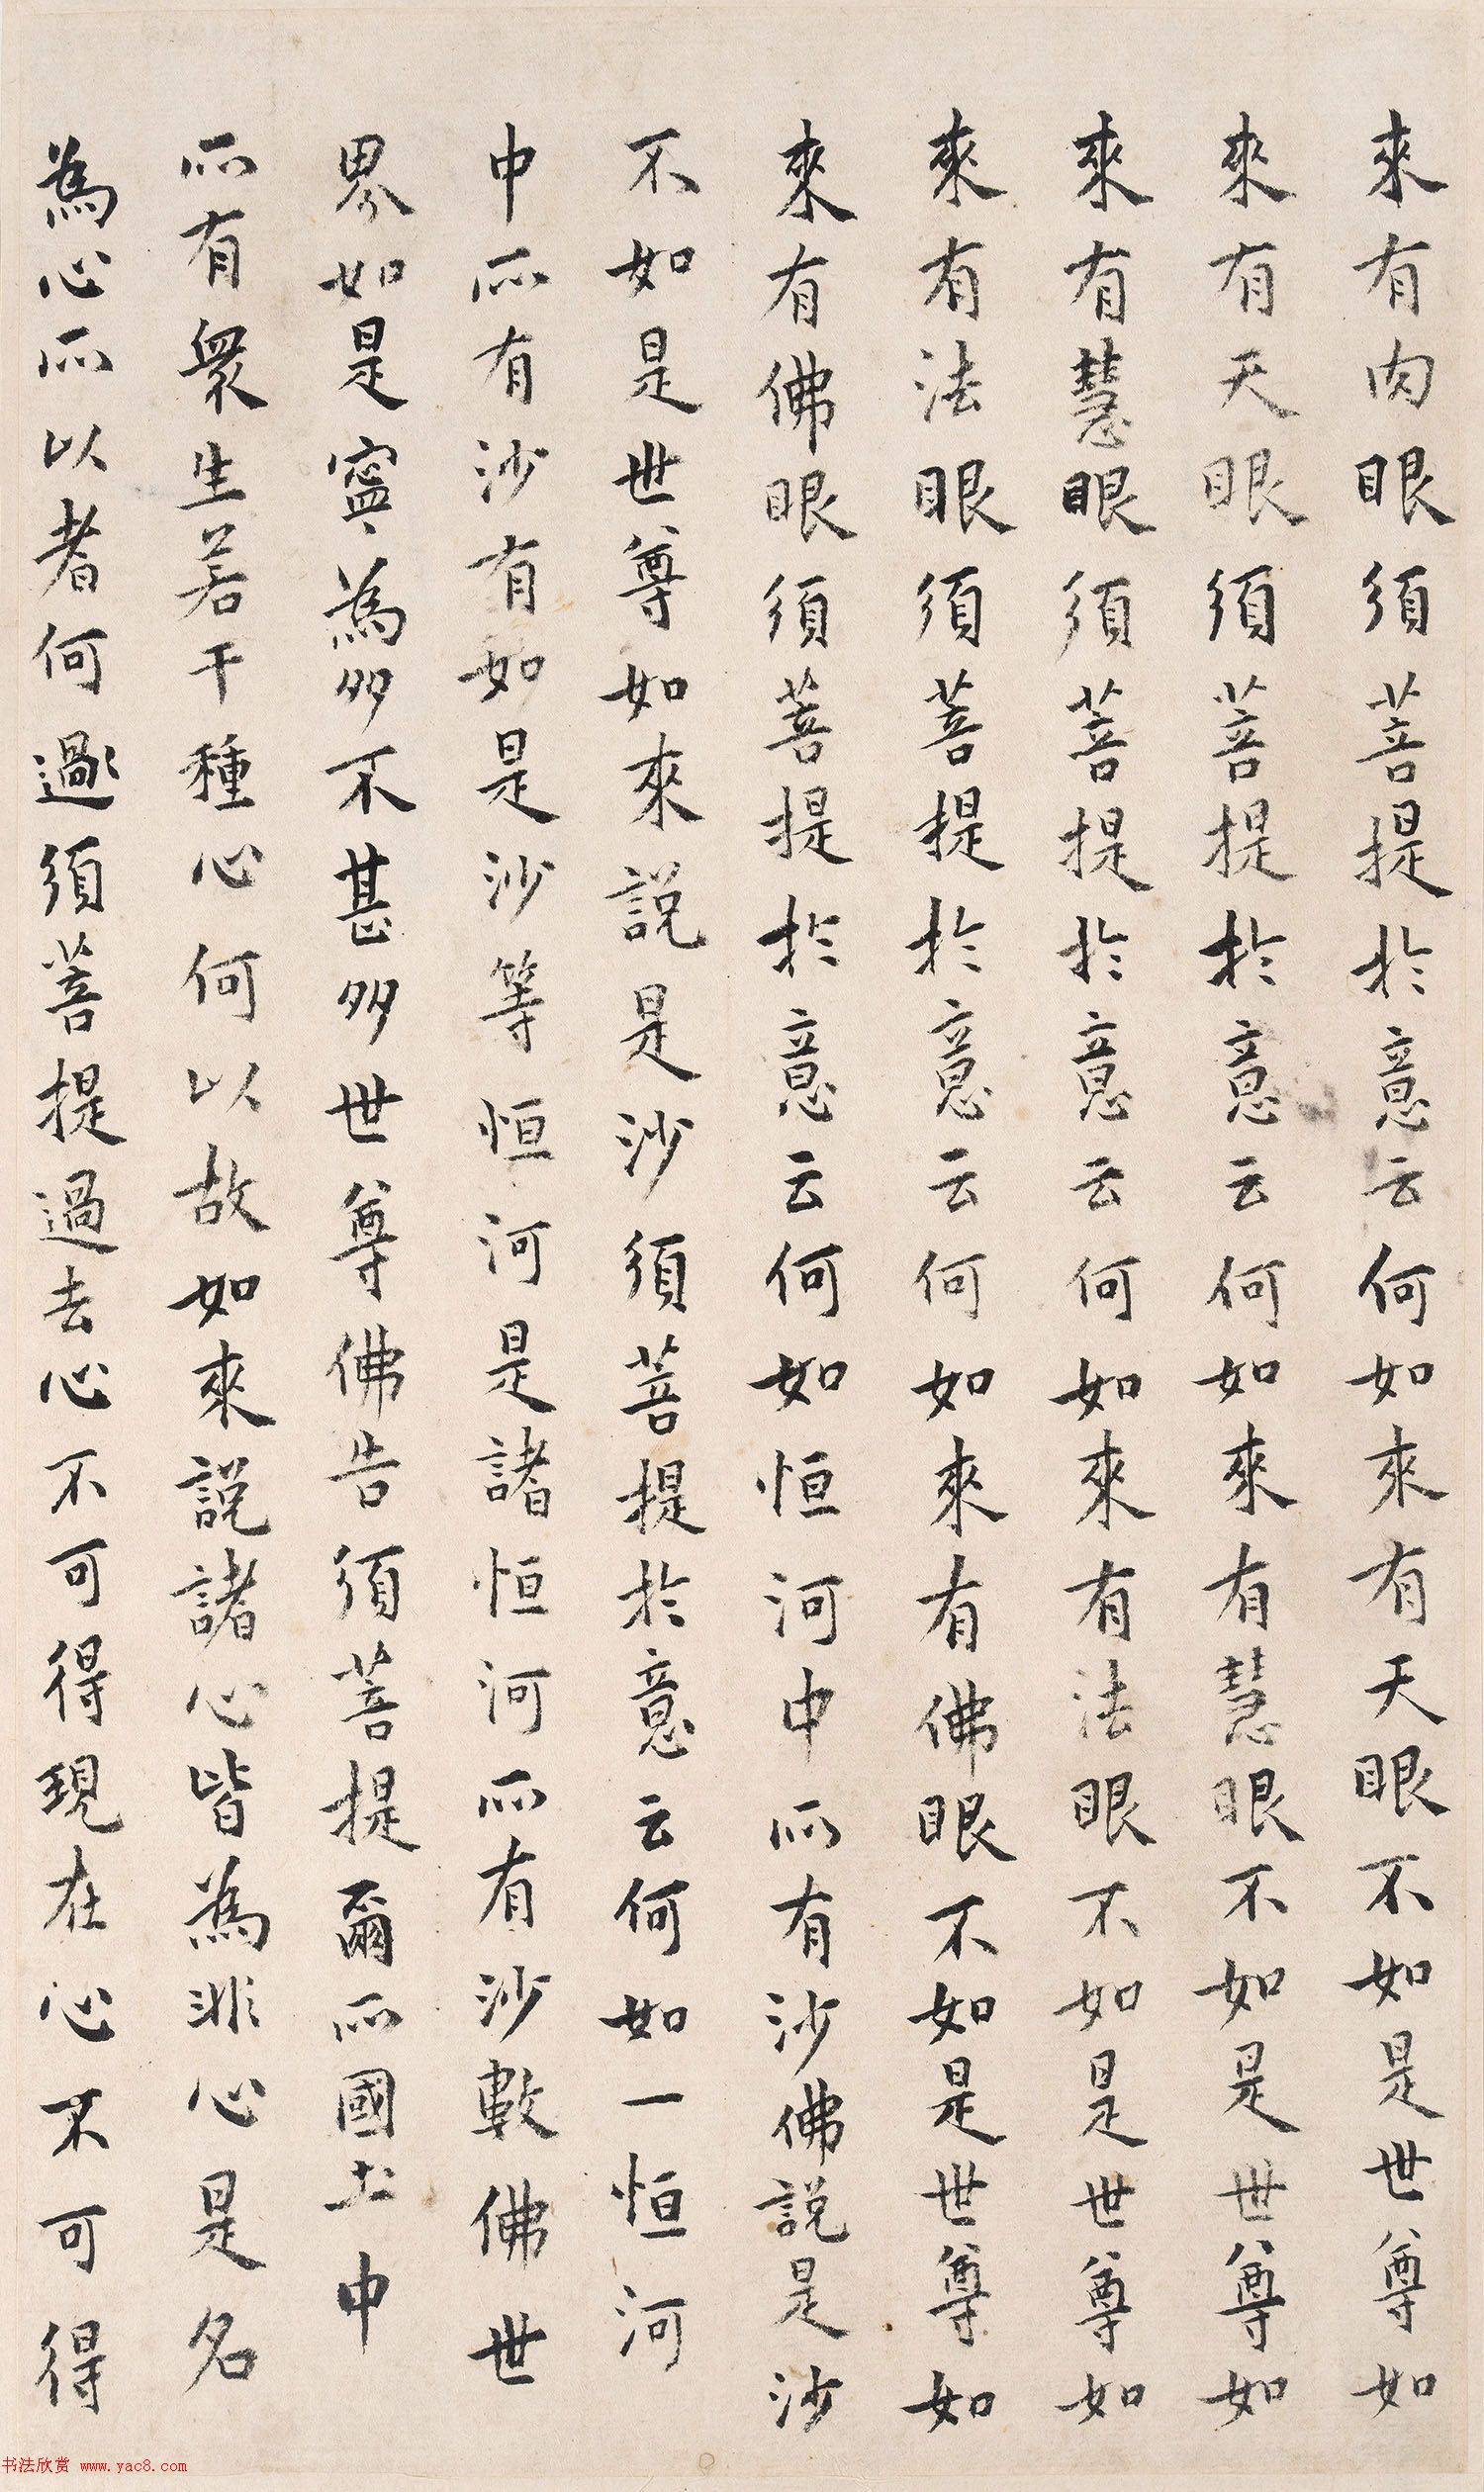 來有肉眼須菩提於意云何如來有天眼不如是世尊如
來有天眼須菩提於意云何如來有慧眼不如是世尊如
來有慧眼須菩提於意云何如來有法眼不如是世尊如
來有法眼須菩提於意云何如來有佛眼不如是世尊如
來有佛眼須菩提於意云何如恒河中所有沙佛說是沙
不如是世尊如來說是沙須菩提於意云何如一恒河
中所有沙有如是沙等恒河是諸恒河所有沙數佛世
界如是寧為多不甚多世尊佛告須菩提爾所國土中
所有衆生若干種心何以故如來說諸心皆為非心是名
為心所以者何過須菩提過去心不可得現在心不可得
书法欣赏 www.yac8.com